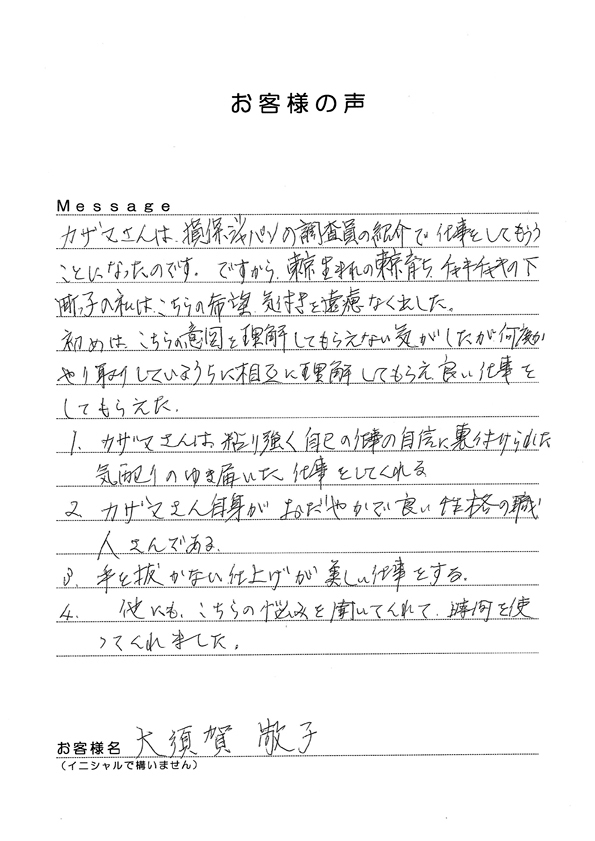 お客様の声
Message
カザマさんは、損保ジャパンの調査員の紹介で仕事をしてもらう
ことになったのです。ですから、東京生まれの東京育ち、チャキチャキの下
町っ子の私は、こちらの希望、気付きを遠慮なく出した。
初めは、こちらの意図を理解してもらえない気がしたが何度か
やり取りしているうちに相互に理解してもらえ良い仕事を
してもらえた。
1. カザマさんは、粘り強く自己の仕事の自信に裏付けられた
気配りのゆき届いた仕事をしてくれる
2. カザマさん自身がおだやかで良い性格の職
人さんである。
3. 手を抜かない仕上げが美しい仕事をする。
4. 他にも、こちらの悩みを聞いてくれて、時間を使
ってくれました。
お客様名 大須賀 敬子
(イニシャルで構いません)